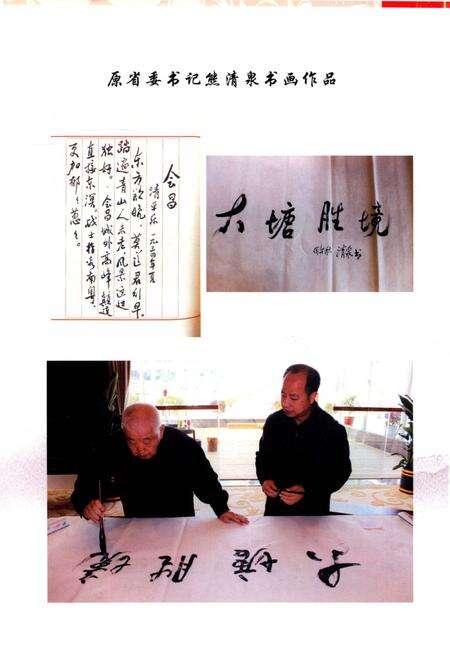 原省委书记熊清泉书画作品
会昌
清平乐 一九三四年夏
东方欲晓，莫道君行早。
踏遍青山人未老，风景这边
独好。会昌城外高峰，颠连
直接东溟。战士指看南粤，
更加郁郁葱葱。
大塘胜境
清泉书
大塘胜境